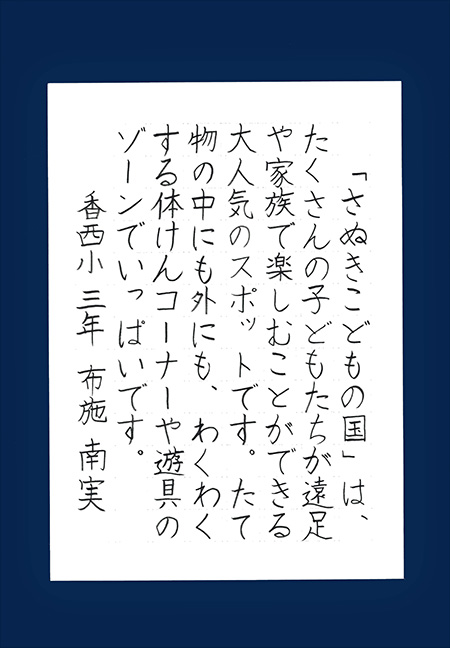 「さぬきこどもの国」は、
たくさんの子どもたちが遠足
や家族で楽しむことができる
大人気のスポットです。たて
物の中にも外にも、わくわく
する体けんコーナーや遊具の
ゾーンでいっぱいです。
香西小 三年 布施 南実